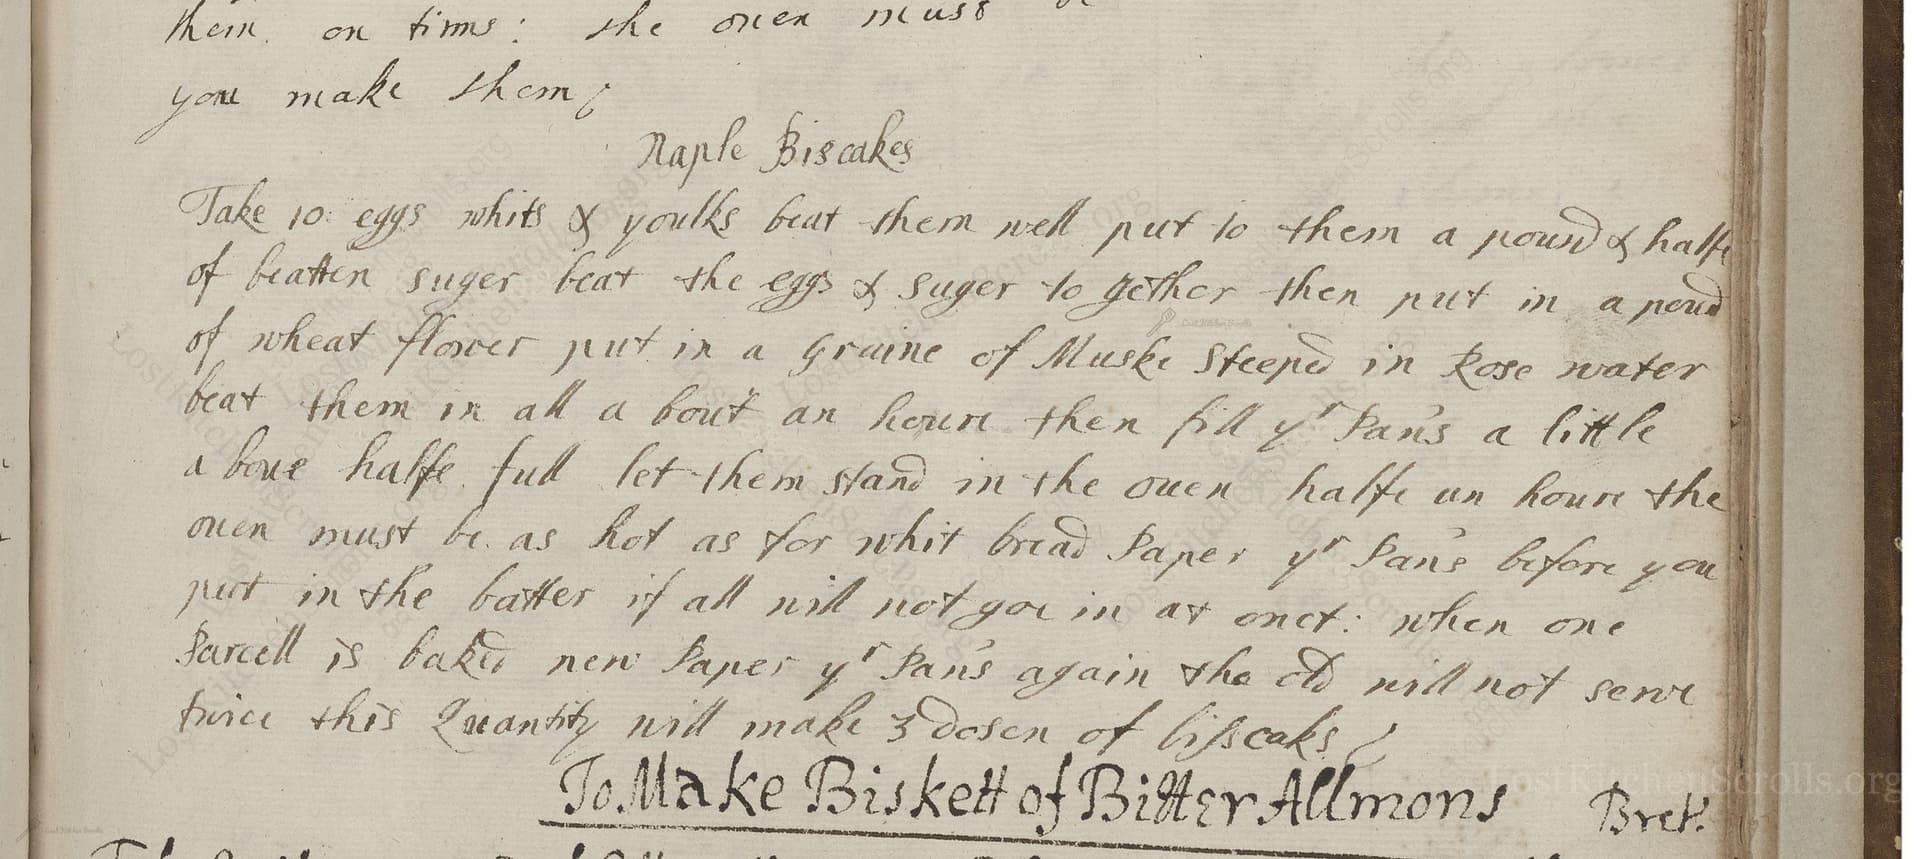 them on tinns: the ouen must
you make them
Naple Biscakes
Take 10: eggs whits & youlks beat them well put to them a pound & halfe
of beatten suger beat the eggs & suger to gether then put in a pound
of wheat flower put in a graine of Muske steeped in Rose water
beat them in all a bout an houre then fill yr Pan's a little
a boue halfe full let them stand in the ouen halfe an houre the
ouen must be as hot as for whit bread Paper yr Pan's before you
put in the batter if all will not goe in at once: when one
Parcell is baked new Paper yr Pan's again the old will not serve
twice this Quantity will make 3 dosen of bisscaks
To Make Biskett of Bitter Allmons Bret:
LostKitchenScrolls.org